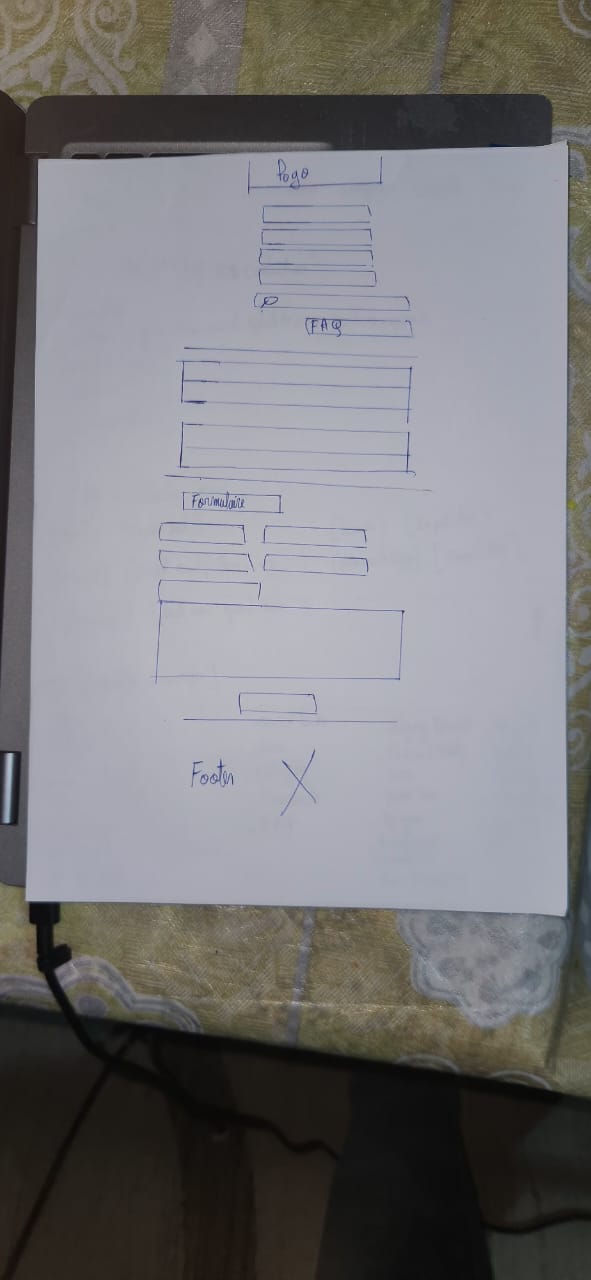 Logo
FAQ
Formulaire
Footer X